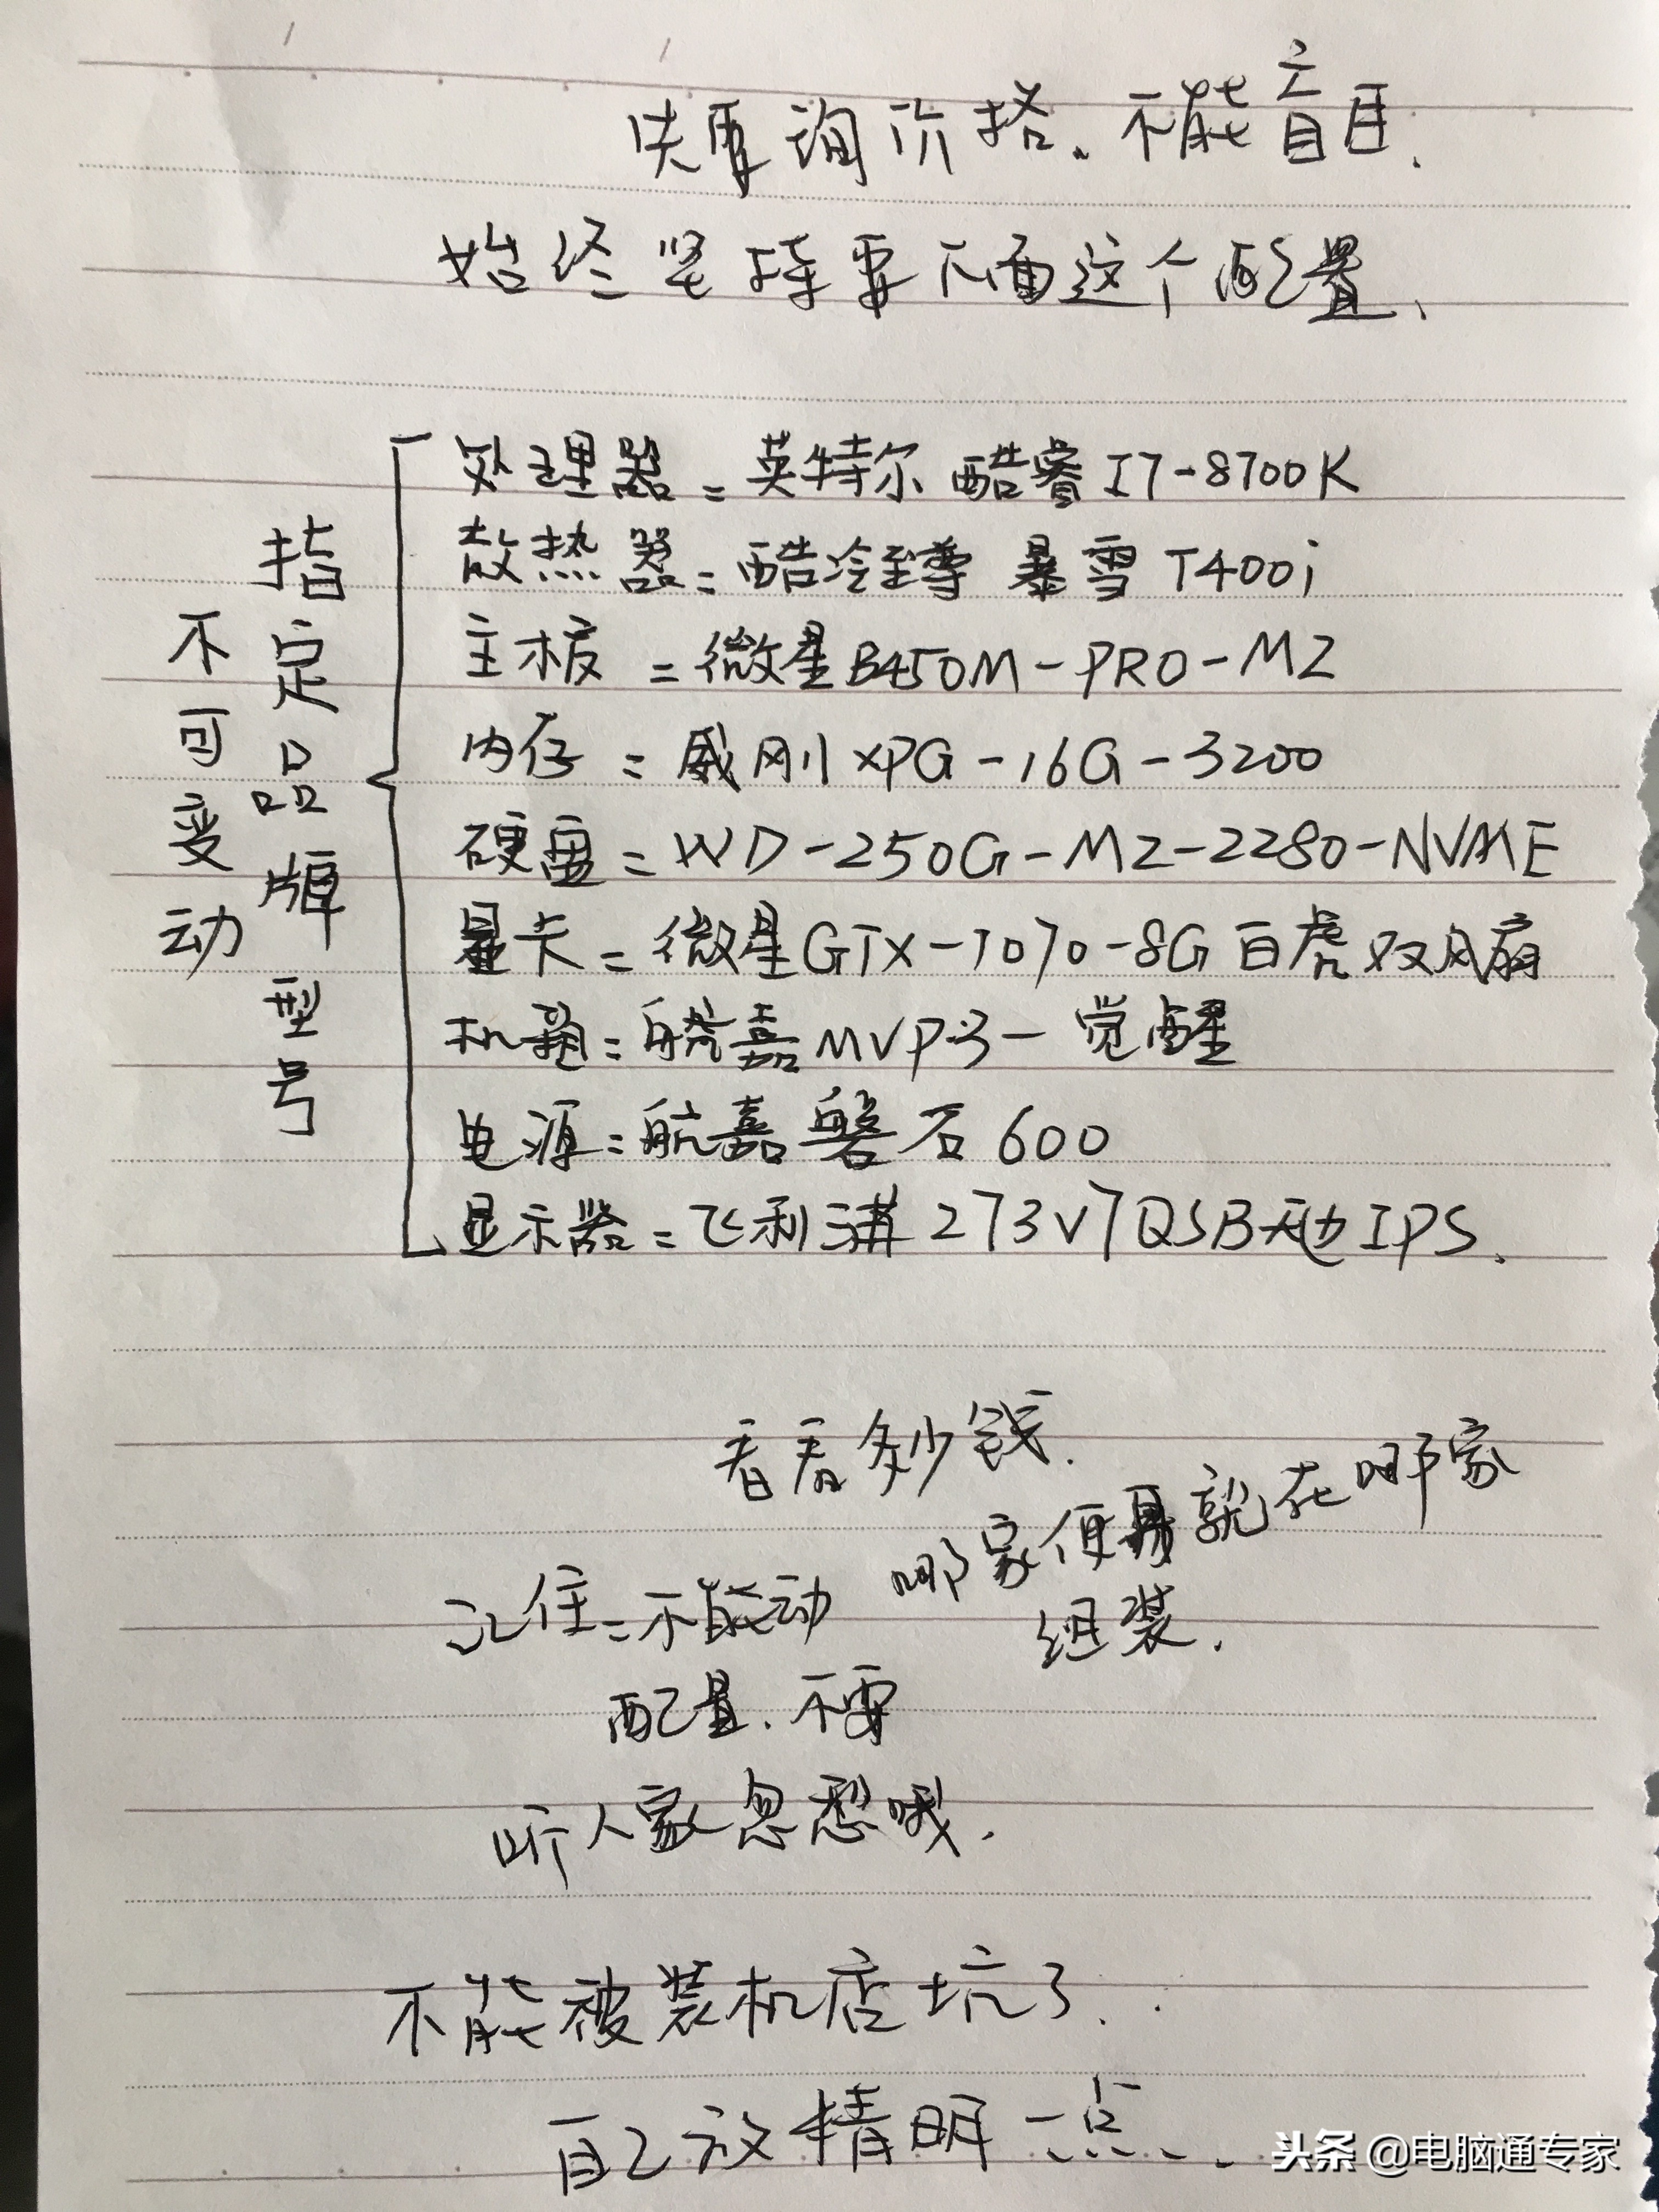 先要询价格、不能盲目.
始终坚持要下面这个配置、
指定品牌型号
不可变动
处理器=英特尔 酷睿I7-8700K
散热器=酷冷至尊 暴雪T400i
主板=微星B450M-PRO-M2
内存=威刚XPG-16G-3200
硬盘=WD-250G-M2-2280-NVME
显卡=微星GTX-1070-8G白虎双风扇
机箱=航嘉MVP3-觉醒
电源=航嘉磐石600
显示器=飞利浦273V7QSB无边IPS.
看看多少钱.
哪家便易就在哪家
组装.
记住=不能动
配置.不要
听人家忽悠哦.
不能被装机店坑了..
自己放精明一点.
头条@电脑通专家